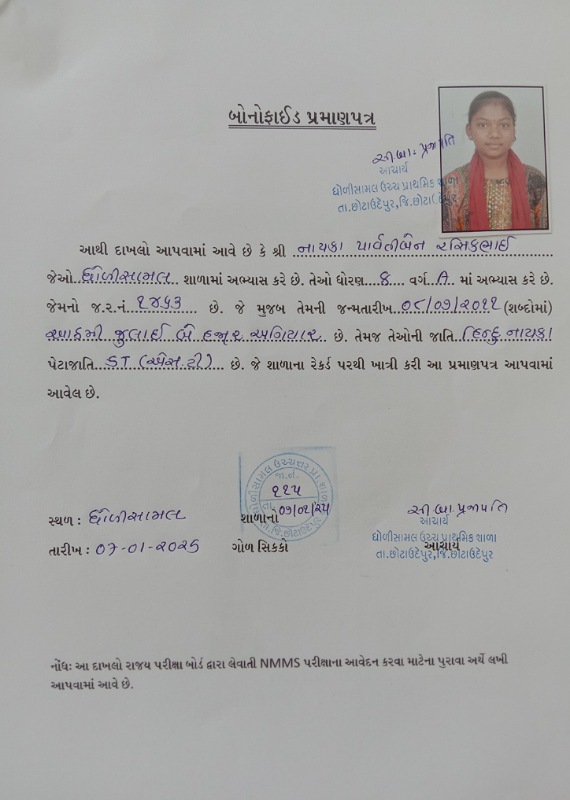 બોનોફાઈડ પ્રમાણપત્ર
સી.બા. પ્રજાપતિ
આચાર્ય
ધોળીસામલ ઉચ્ચ પ્રાથમિક શાળા
તા.છોટાઉદેપુર,જિ.છોટાઉદેપુર
આથી દાખલો આપવામાં આવે છે કે શ્રી નાયકા પાર્વતીબેન રસિકભાઈ
જેઓ ધોળીસામલ શાળામાં અભ્યાસ કરે છે. તેઓ ધોરણ 8 વર્ગ A માં અભ્યાસ કરે છે.
જેમનો જ.ર.નં. ૧૪૫૩ છે. જે મુજબ તેમની જન્મતારીખ ૦૮/૦૭/૨૦૧૧ (શબ્દોમાં)
આઠમી જુલાઈ બે હજાર અગિયાર છે. તેમજ તેઓની જાતિ હિન્દુ નાયકા
પેટાજાતિ ST (એસ.ટી) છે. જે શાળાના રેકર્ડ પરથી ખાત્રી કરી આ પ્રમાણપત્ર આપવામાં
આવેલ છે.
ધોળીસામલ ઉચ્ચત્તર પ્રા.શાળા
જા.નં.
૧૧૫
તા. ૦૭/૦૧/૨૫
જિ.છોટાઉદેપુર
સ્થળ : ધોળીસામલ
શાળાનો
સી.બા.પ્રજાપતિ
આચાર્ય
તારીખ : 07-01-2025
ગોળ સિક્કો
ધોળીસામલ ઉચ્ચ પ્રાથમિક શાળા
આચાર્ય
તા.છોટાઉદેપુર,જિ.છોટાઉદેપુર
નોંધ: આ દાખલો રાજય પરીક્ષા બોર્ડ દ્વારા લેવાતી NMMS પરીક્ષાના આવેદન કરવા માટેના પુરાવા અર્થે લખી
આપવામાં આવે છે.